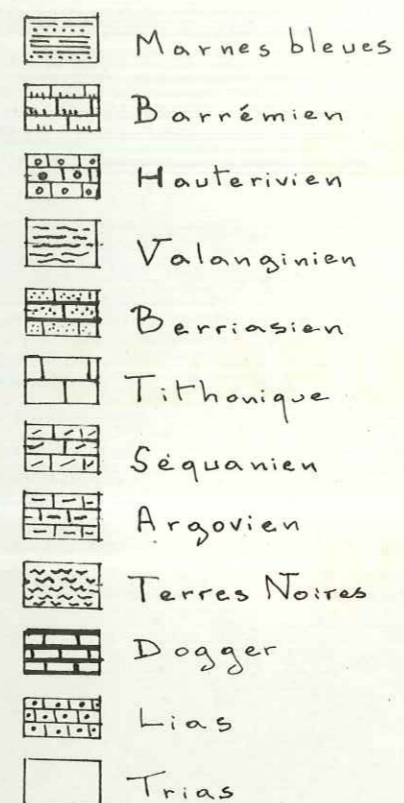 Marnes bleues
Barrémien
Hauterivien
Valanginien
Berriasien
Tithonique
Séquanien
Argovien
Terres Noires
Dogger
Lias
Trias